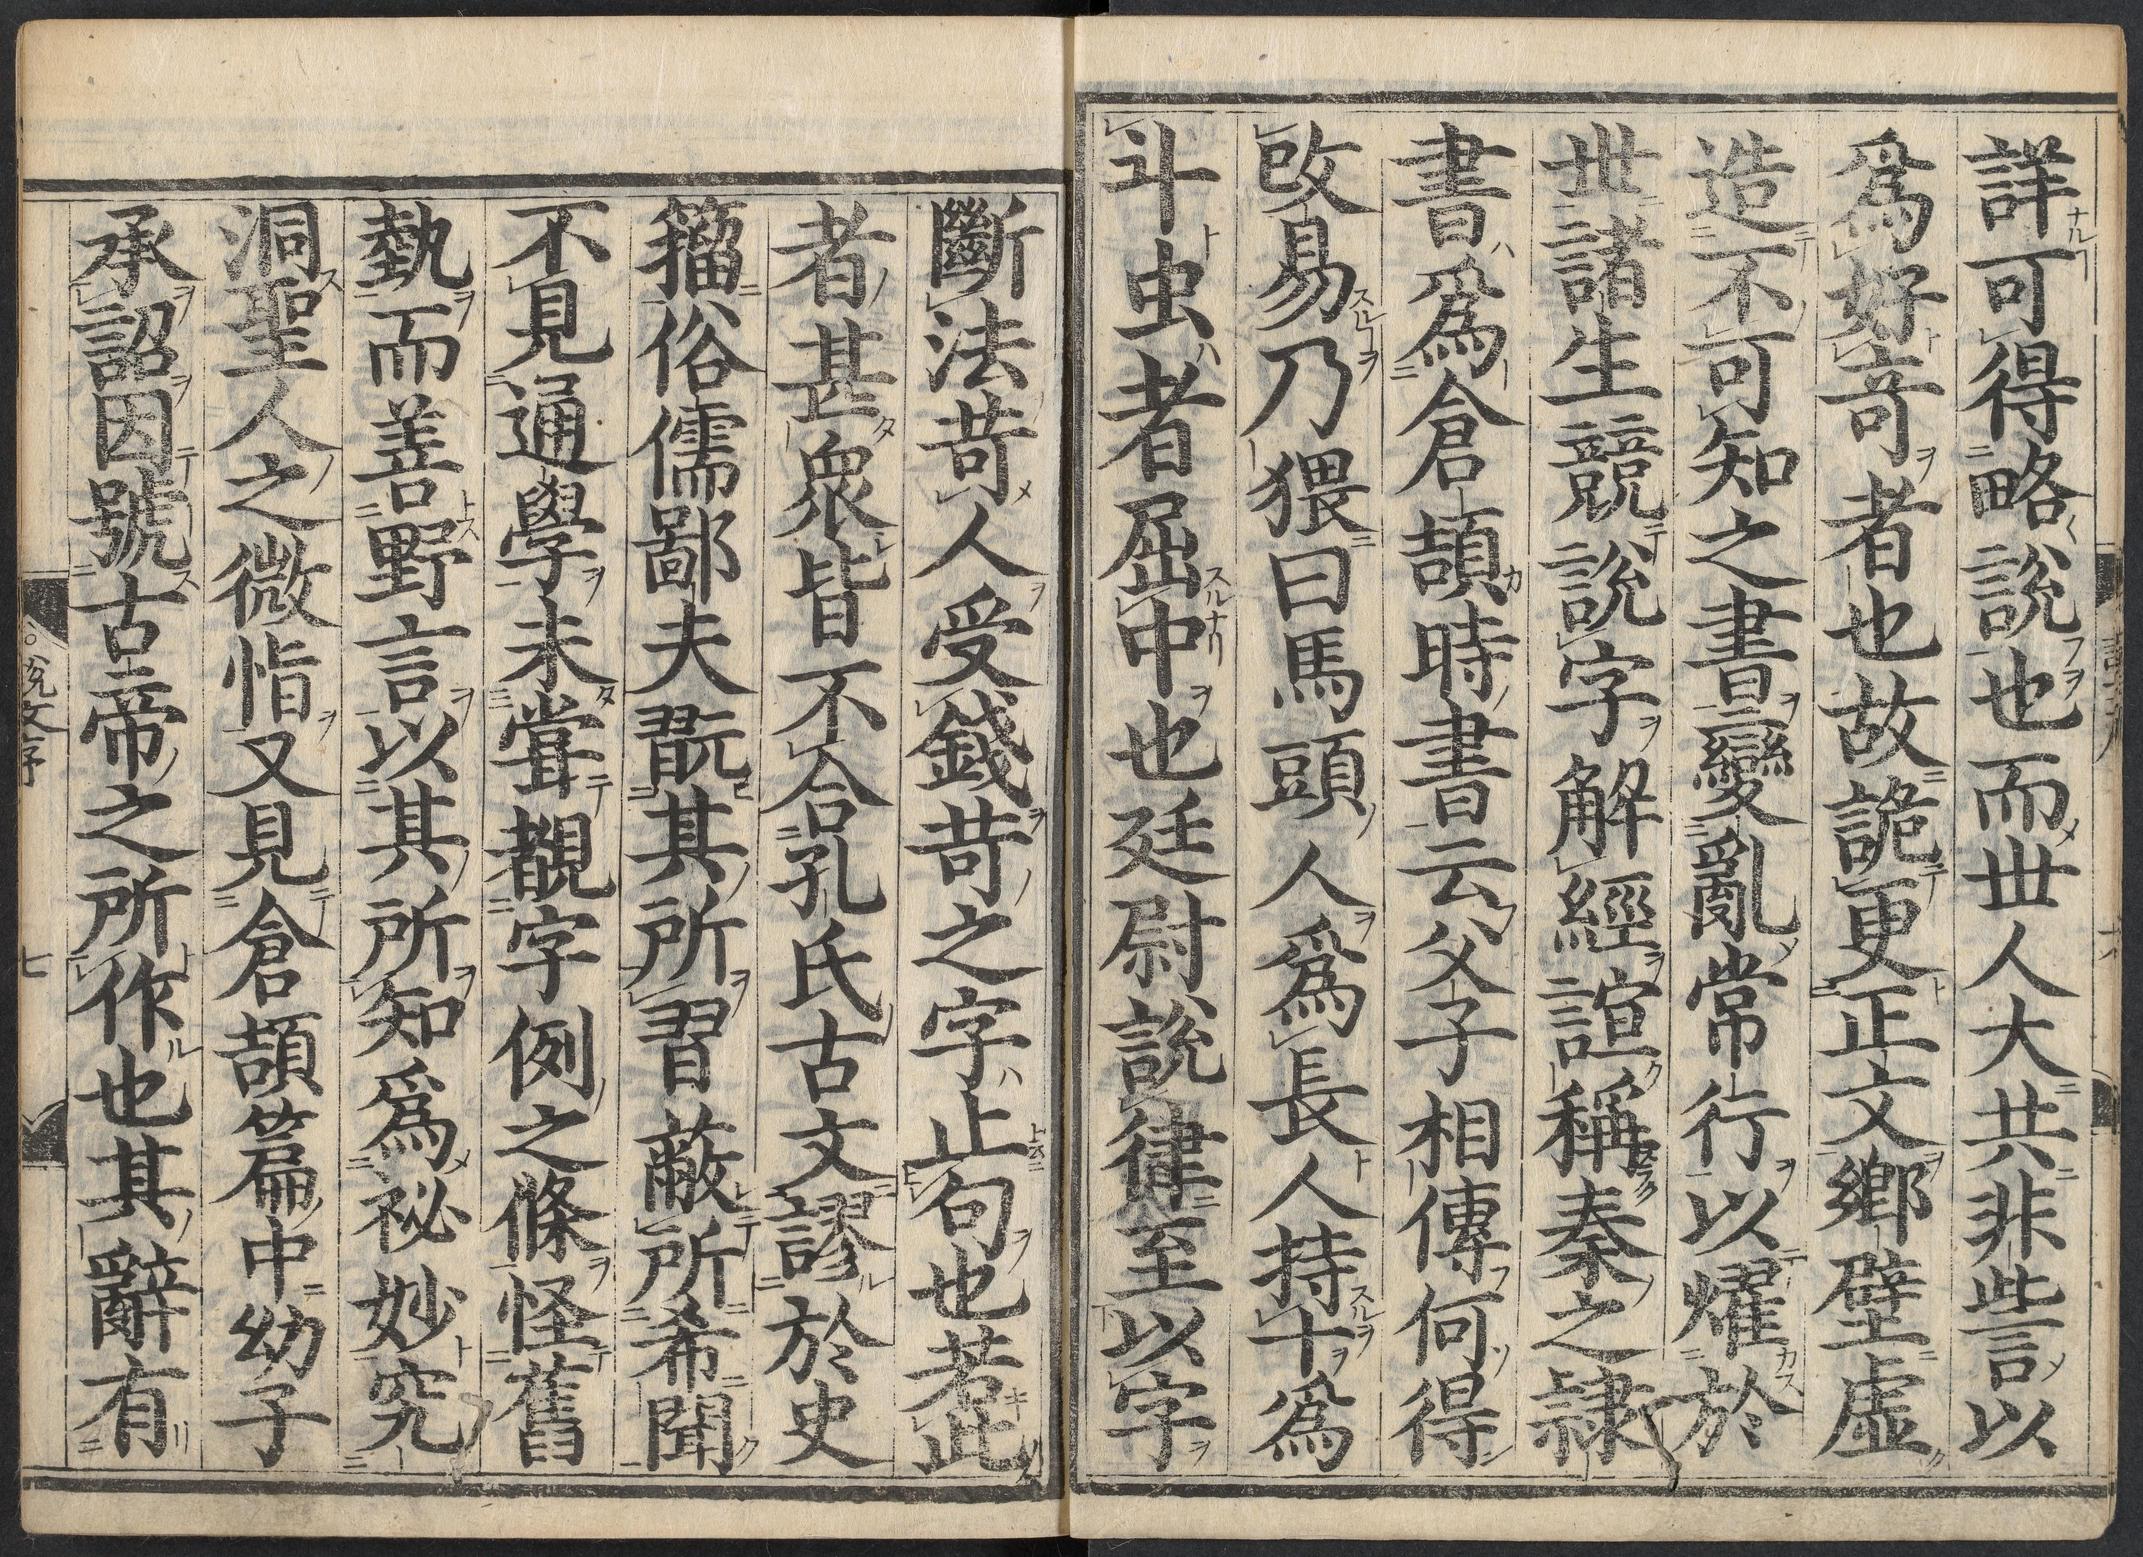 詳可得略說也而世人大共非訾以
爲好竒者也故詭更正文鄉壁虛
造不可知之書變亂常行以燿於
世諸生競說字解經諠稱秦之隷
書爲倉頡時書云父子相傳何得
改易乃猥曰馬頭人爲長人持十爲
斗虫者屈中也廷尉說律至以字
斷法苛人受錢苛之字止句也若此
者甚衆皆不合孔氏古文謬於史
籒俗儒鄙夫翫其所習蔽所希聞
不見通學未甞覩字例之條怪舊
埶而善野言以其所知爲祕妙究
洞聖人之微恉又見倉頡篇中幼子
承詔因號古帝之所作也其辭有
説文序 七